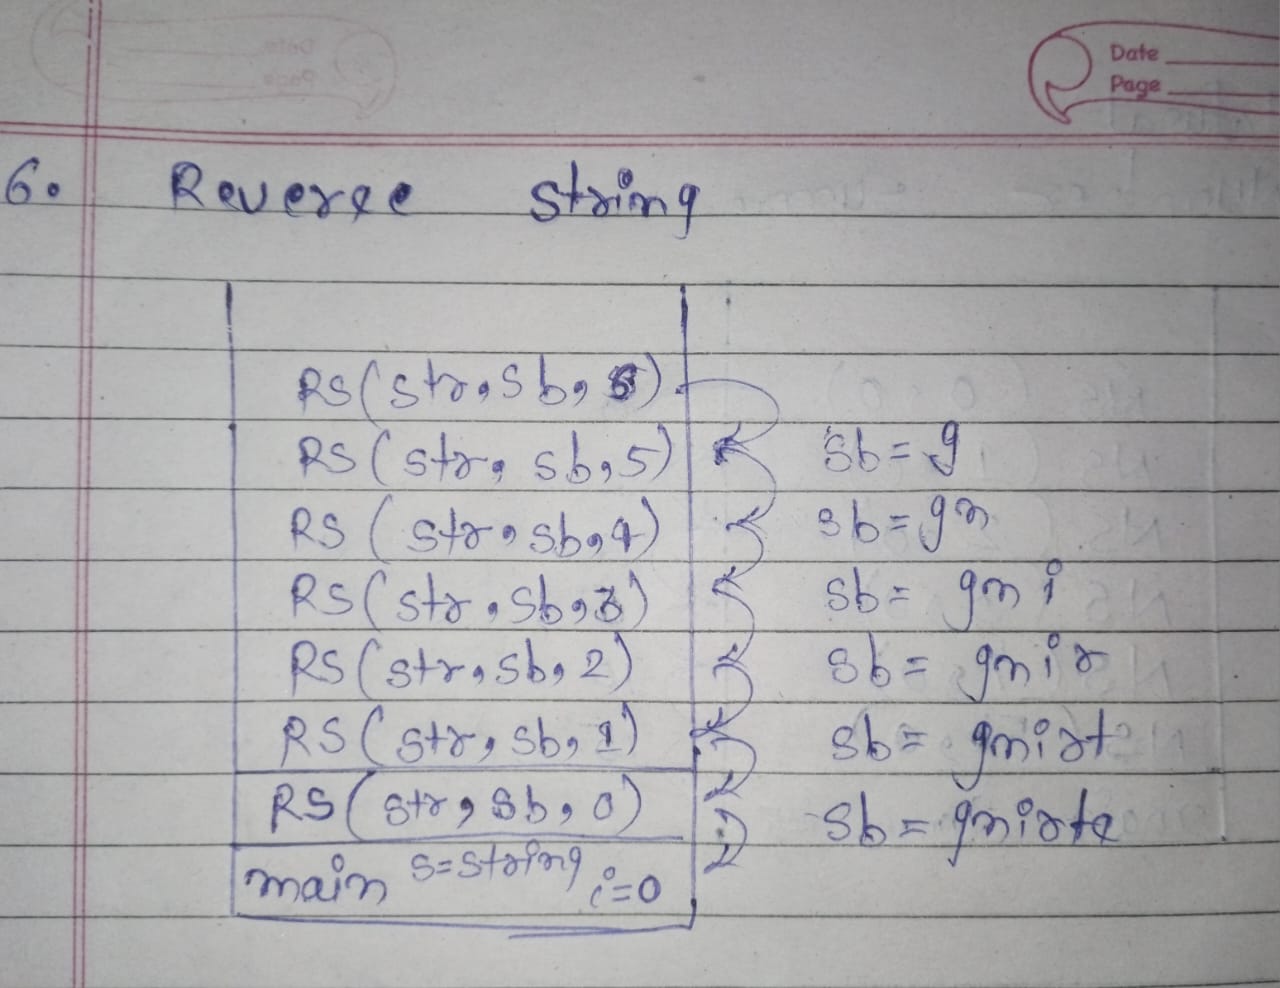 Date
Page
6. Reverse string
RS(str, sb, 6)
RS(str, sb, 5) sb = g
RS(str, sb, 4) sb = gn
RS(str, sb, 3) sb = gni
RS(str, sb, 2) sb = gnir
RS(str, sb, 1) sb = gnirt
RS(str, sb, 0) sb = gnirts
main s=string i=0